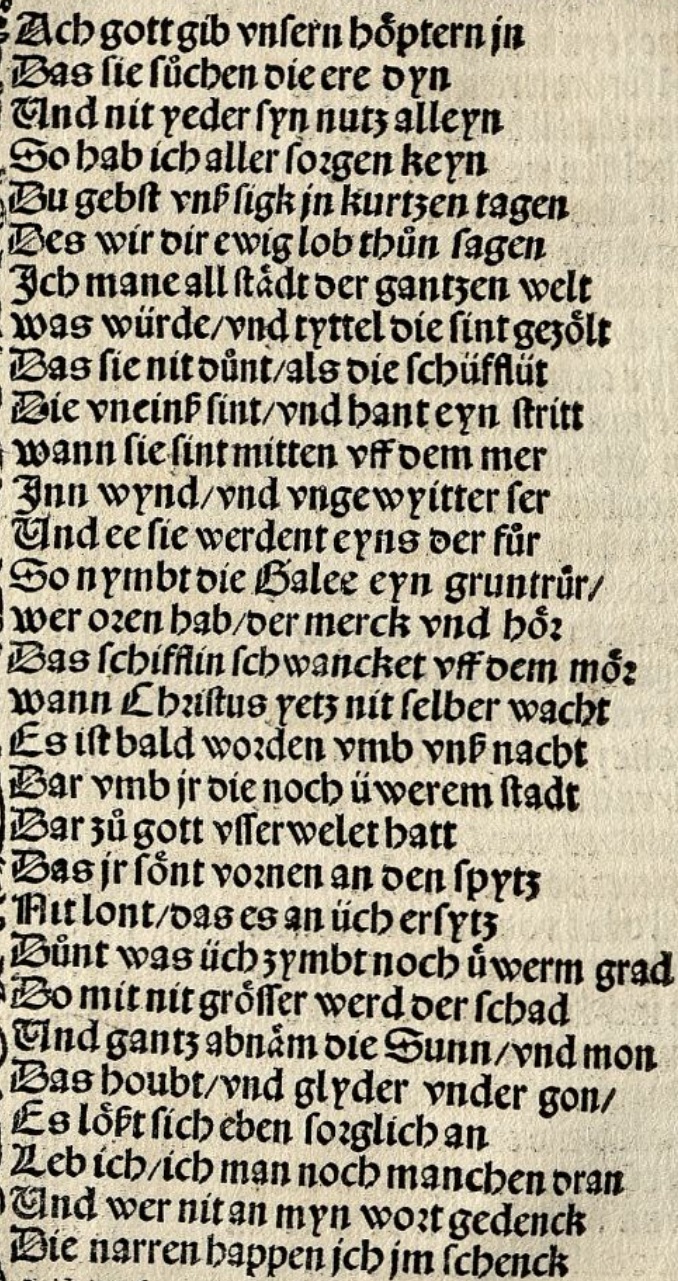 Ach gott gib vnsern hoͤptern jn
Das sie suͦchen die ere dyn
Und nit yeder syn nutz alleyn
So hab ich aller sorgen keyn
Du gebst vnß sigk jn kurtzen tagen
Des wir dir ewig lob thuͦn sagen
Jch mane all staͤdt der gantzen welt
was würde/vnd tyttel die sint gezoͤlt
Das sie nit duͤnt/als die schüfflüt
Die vneinß sint/vnd hant eyn stritt
wann sie sint mitten vff dem mer
Jnn wynd/vnd vngewyitter ser
Und ee sie werdent eyns der fuͤr
So nymbt die Galee eyn gruntruͤr/
wer oren hab/der merck vnd hoͤr
Das schifflin schwancket vff dem moͤr
wann Christus yetz nit selber wacht
Es ist bald worden vmb vnß nacht
Dar vmb jr die noch üwerem stadt
Dar zuͦ gott vsserwelet hatt
Das jr soͤnt vornen an den spytz
Nit lont/das es an üch ersytz
Duͤnt was üch zymbt noch uͤwerm grad
Do mit nit groͤsser werd der schad
Und gantz abnaͤm die Sunn/vnd mon
Das houbt/vnd glyder vnder gon/
Es loͤßt sich eben sorglich an
Leb ich/ich man noch manchen dran
Und wer nit an myn wort gedenck
Die narren kappen jch jm schenck